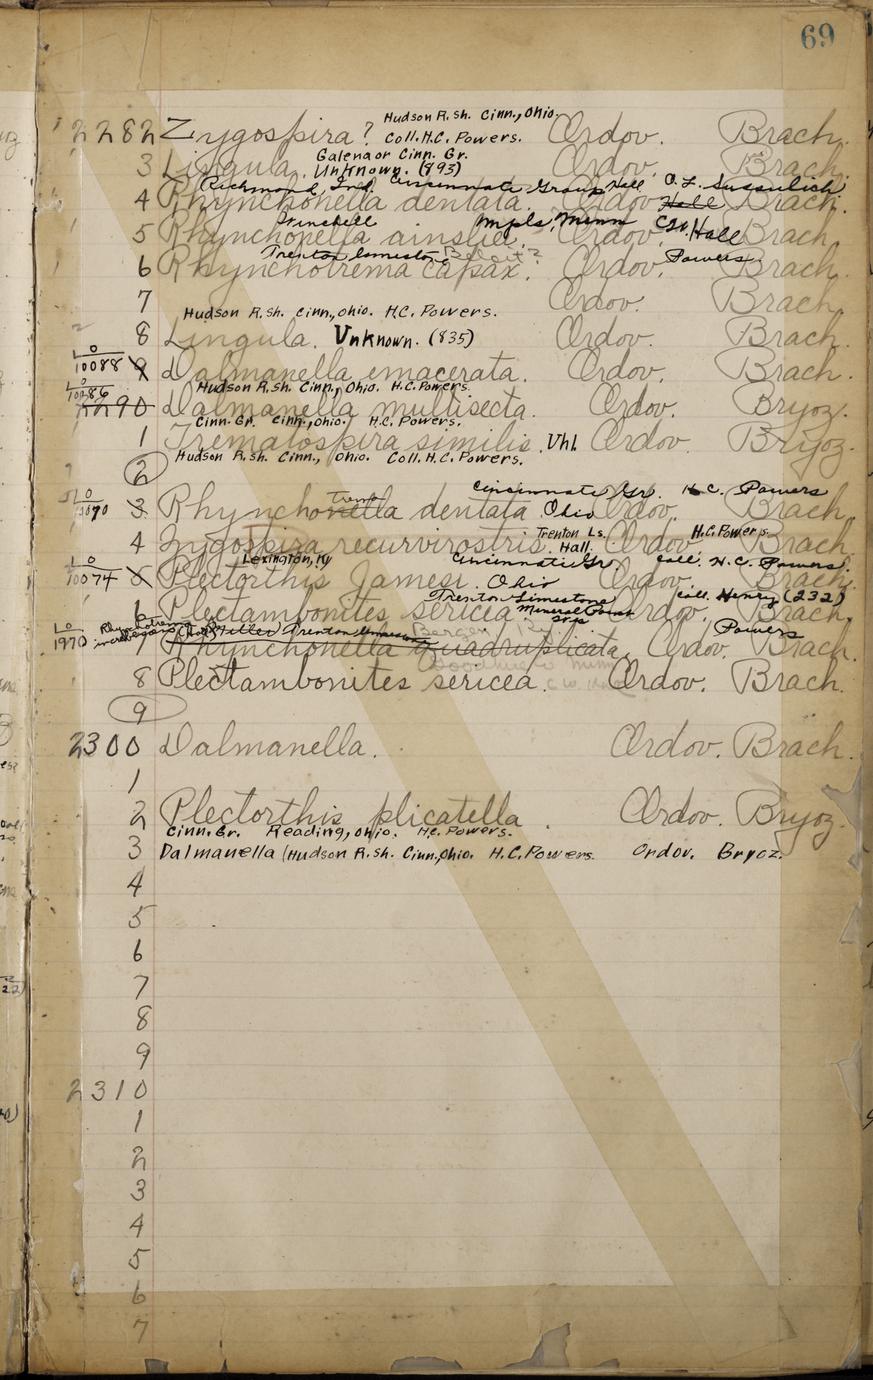 69
Hudson R. sh. Cinn., Ohio.
2282 Zygospira? Coll. H.C. Powers. Ordov. Brach.
Galena or Cinn. Gr.
3 Lingula. Unknown. (893) Ordov. Brach.
Richmond, Ind. Cincinnati Group Hall
4 Rhynchonella dentata. Ordov. Hall Brach.
Winchell Mpls, Minn C.W. Hall
5 Rhynchonella ainsliei. Ordov. Brach.
Trenton limestone Beloit? Powers
6 Rhynchotrema capax. Ordov. Brach.
7 Ordov. Brach.
Hudson R. sh. Cinn., Ohio. H.C. Powers.
8 Lingula. Unknown. (835) Ordov. Brach.
LO
10088 9 Dalmanella emacerata. Ordov. Brach.
Hudson R. sh. Cinn., Ohio. H.C. Powers.
LO
2290 Dalmanella multisecta. Ordov. Bryoz.
Cinn. Gr. Cinn., Ohio. H.C. Powers.
1 Trematospira similis. Uhl. Ordov. Bryoz.
Hudson R. sh. Cinn., Ohio. Coll. H.C. Powers.
2
trema Cincinnati Gr. H.C. Powers
LO
3 Rhynchonella dentata Ohio Ordov. Brach.
Trenton Ls. H.C. Powers
4 Zygospira recurvirostris. Hall. Ordov. Brach.
Lexington, Ky Cincinnati Gr. Coll. H.C. Powers.
LO
10074 5 Plectorthis Jamesi. Ohio Ordov. Brach.
Trenton Limestone Coll. Henry (232)
6 Plectambonites sericea Mineral Point Ordov. Brach.
Rhynchotrema Trenton limestone Powers
LO
1970 7 Rhynchonella quadruplicata Ordov. Brach.
Minn
8 Plectambonites sericea. Ordov. Brach.
9
2300 Dalmanella. Ordov. Brach.
1
2 Plectorthis plicatella. Ordov. Bryoz.
Cinn. Gr. Reading, Ohio. H.C. Powers.
3 Dalmanella (Hudson R. sh. Cinn., Ohio. H.C. Powers. Ordov. Bryoz.
4
5
6
7
8
9
2310
1
2
3
4
5
6
7